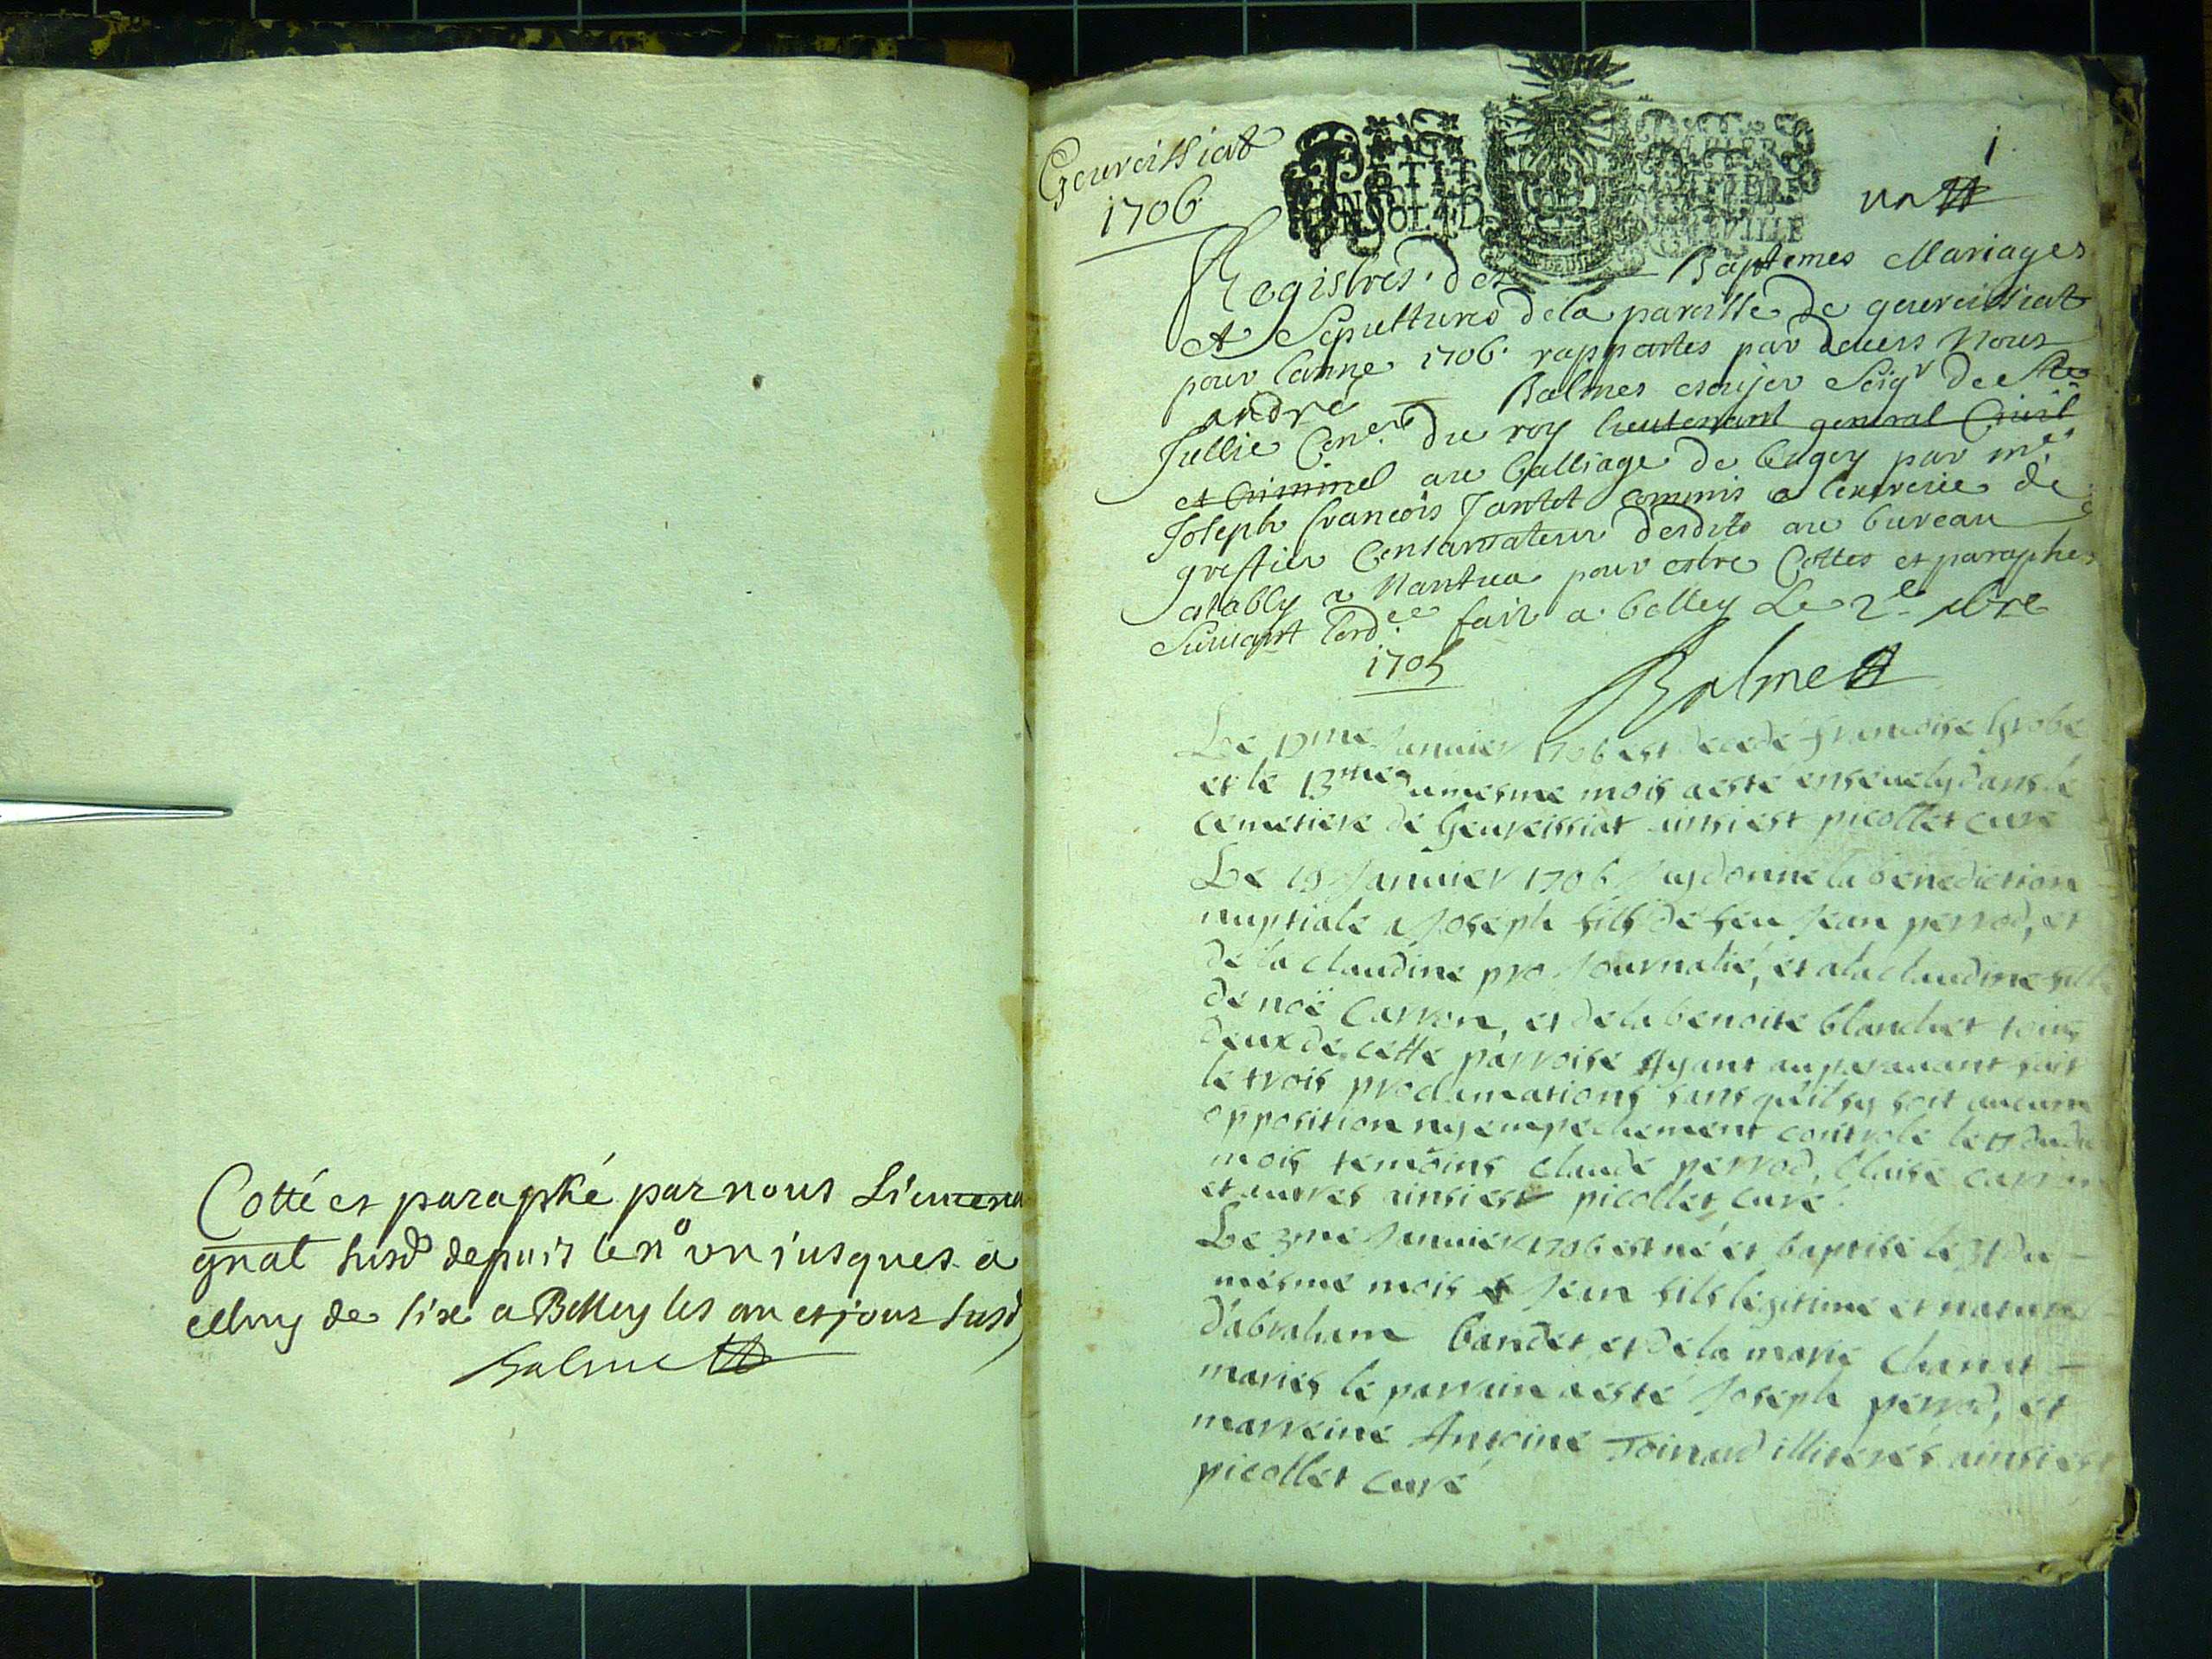 Cotté et paraphé par nous Lieutenant
gnal susd depuis le no un jusques a
celluy de six a Belley les an et jour susd
Balme
Geurcissiat
1706
PETIT
1
un
Registres des Baptemes Mariages
et Sepultures de la paroisse de geurcissiat
pour lanne 1706 rapportes par devers Nous
andré Balmes escuyer Seigr de Ste
Jullie Coner du roy lieutenant general Civil
et Criminel au balliage de bugey par me
Joseph francois Jantet commis a lexercice de
greffier Conservateur desdits au bureau
establly a Nantua pour estre Cottes et paraphes
suivant lordce fait a belley Le 2e xbre
1705
Balme
Le Januier 1706 est decede francoise grobe
et le 13me du mesme mois a esté enseuely dans le
cemetiere de Geureissiat ainsi est picollet curé
Le 19 Januier 1706 J'ay donné la benediction
nuptiale a Joseph fils de feu Jean perrod, et
de la claudine pro Journalié, et a la claudine fille
de noë Carron, et de la benoite blanchet tous
deux de cette parroise Ayant auparauant fait
le trois proclamations sans qu'il sy soit aucune
opposition ny empechement controlé le du
mois temoins claude perrod, blaise carron
et autres ainsi est picollet curé
Le 3me Januier 1706 est né et baptisé le du
mesme mois Jean fils legitime et naturel
d'abraham bandet et de la marie
mariés le parrain a esté Joseph perrod, et
marreine Antoine Toinard illiterés ainsi est
picollet curé